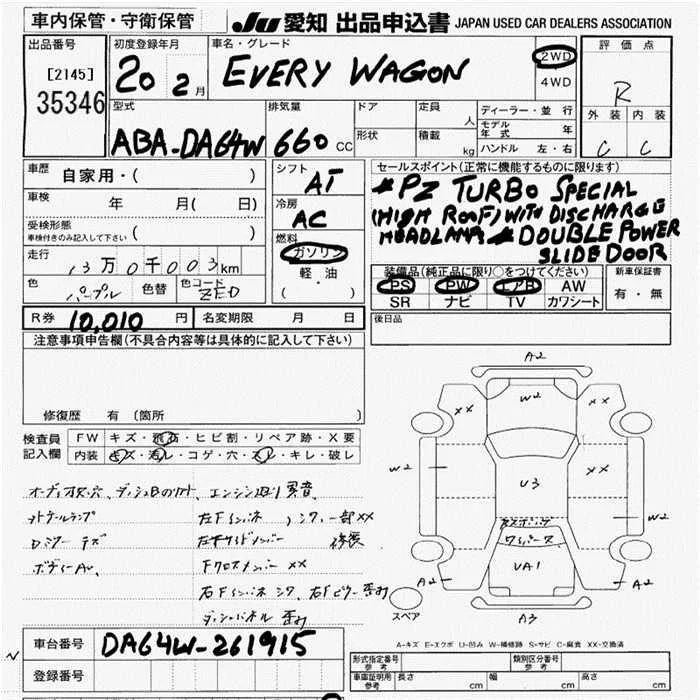 車内保管・守衛保管 JU 愛知 出品申込書 JAPAN USED CAR DEALERS ASSOCIATION
出品番号 初度登録年月 車名・グレード 評価点
[2145] 20 2月 EVERY WAGON 2WD R
35346 4WD 外装 内装
型式 排気量 ドア 定員 人 ディーラー・並行 C C
モデル年式 年
ABA-DA64W 660 CC 形状 積載 kg ハンドル 左・右
車歴 自家用・( ) シフト AT セールスポイント(正常に機能するものに限ります)
車検 年 月( 日) 冷房 AC *PZ TURBO SPECIAL
(HIGH ROOF) WITH DISCHARGE
受検形態 ( ) 燃料 HEADLAMP * DOUBLE POWER
車検付きのみ記入して下さい SLIDE DOOR
走行 13万0千003km ガソリン 装備品(純正品に限り○をつけてください) 新車保証書
色 パープル 色替 色コード ZED 軽・油 PS PW エアB AW 有・無
( ) SR ナビ TV カワシート
R券 10,010円 名変期限 月 日 後日品
注意事項申告欄(不具合内容等は具体的に記入して下さい)
修復歴 有 (箇所 )
検査員 FW キズ・飛石・ヒビ割・リペア跡・X要
記入欄 内装 キズ・汚レ・コゲ・穴・スレ・キレ・破レ
A2
XX W2 XX
W2 U3 XX
W2
A2 UA1 A2
A3
スペア
オーディオ穴、エンジン 異音、
左Fインパネ 一部XX
ボディーAU、 FクロスメンバーXX
右Fインパネ
A=キズ E=エクボ U=凹み W=補修跡 S=サビ C=腐食 XX=交換済
車台番号 DA64W-261915
登録番号
形式指定番号 参考 類別区分番号 参考
車庫証明用 参考 長さ cm 幅 cm 高さ cm